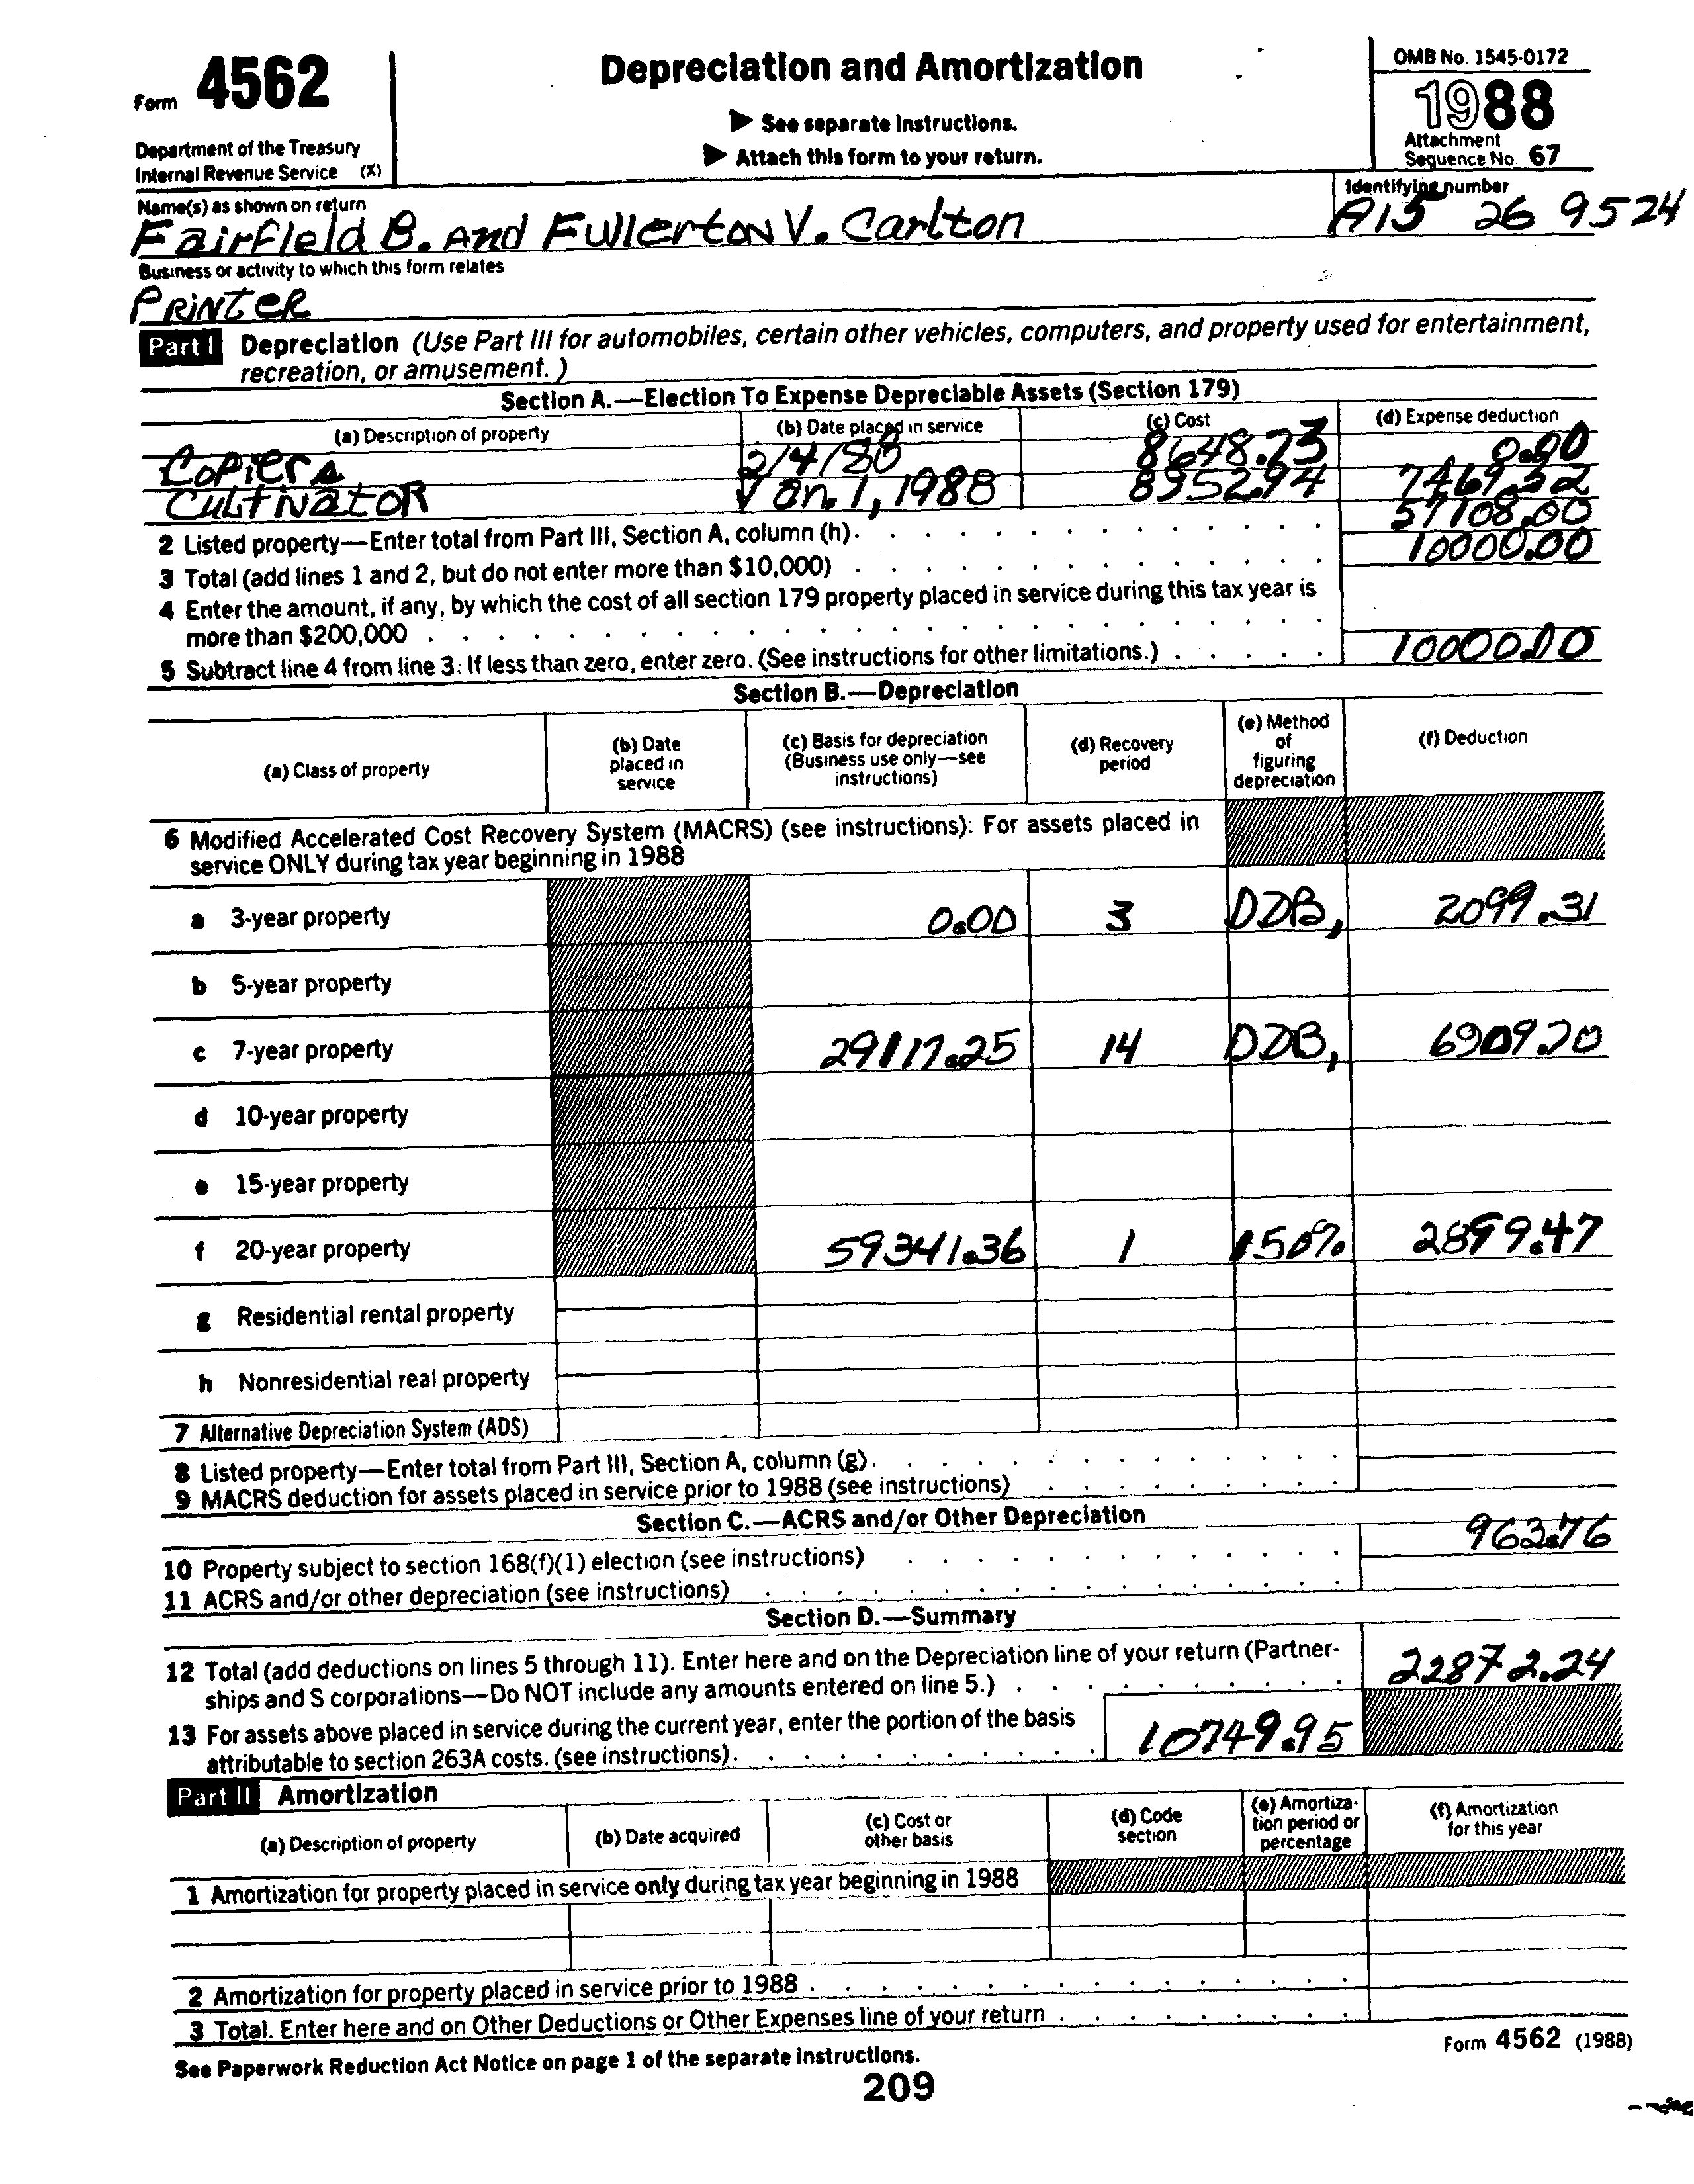 Form 4562
Depreciation and Amortization
OMB No. 1545-0172
1988
▶ See separate Instructions.
▶ Attach this form to your return.
Department of the Treasury
Internal Revenue Service (X)
Attachment
Sequence No. 67
Name(s) as shown on return
Identifying number
Fairfield B. And Fullerton V. Carlton
A15 26 9524
Business or activity to which this form relates
PRiNTER
Part I Depreciation (Use Part III for automobiles, certain other vehicles, computers, and property used for entertainment,
recreation, or amusement.)
Section A.—Election To Expense Depreciable Assets (Section 179)
(a) Description of property (b) Date placed in service (c) Cost (d) Expense deduction
Copiers 2/4/88 8648.73 0.00
CultivatoR Jan. 1, 1988 8952.94 7469.52
2 Listed property—Enter total from Part III, Section A, column (h). 57108.00
3 Total (add lines 1 and 2, but do not enter more than $10,000) 10000.00
4 Enter the amount, if any, by which the cost of all section 179 property placed in service during this tax year is
more than $200,000
5 Subtract line 4 from line 3. If less than zero, enter zero. (See instructions for other limitations.) 10000.00
Section B.—Depreciation
(a) Class of property (b) Date placed in service (c) Basis for depreciation (Business use only—see instructions) (d) Recovery period (e) Method of figuring depreciation (f) Deduction
6 Modified Accelerated Cost Recovery System (MACRS) (see instructions): For assets placed in
service ONLY during tax year beginning in 1988
a 3-year property 0.00 3 DDB, 2099.31
b 5-year property
c 7-year property 29117.25 14 DDB, 6909.20
d 10-year property
e 15-year property
f 20-year property 59341.36 1 150% 2899.47
g Residential rental property
h Nonresidential real property
7 Alternative Depreciation System (ADS)
8 Listed property—Enter total from Part III, Section A, column (g).
9 MACRS deduction for assets placed in service prior to 1988 (see instructions)
Section C.—ACRS and/or Other Depreciation
10 Property subject to section 168(f)(1) election (see instructions) 963.76
11 ACRS and/or other depreciation (see instructions)
Section D.—Summary
12 Total (add deductions on lines 5 through 11). Enter here and on the Depreciation line of your return (Partner-
ships and S corporations—Do NOT include any amounts entered on line 5.) 22872.24
13 For assets above placed in service during the current year, enter the portion of the basis
attributable to section 263A costs. (see instructions). 10749.95
Part II Amortization
(a) Description of property (b) Date acquired (c) Cost or other basis (d) Code section (e) Amortiza-tion period or percentage (f) Amortization for this year
1 Amortization for property placed in service only during tax year beginning in 1988
2 Amortization for property placed in service prior to 1988
3 Total. Enter here and on Other Deductions or Other Expenses line of your return
See Paperwork Reduction Act Notice on page 1 of the separate Instructions.
Form 4562 (1988)
209